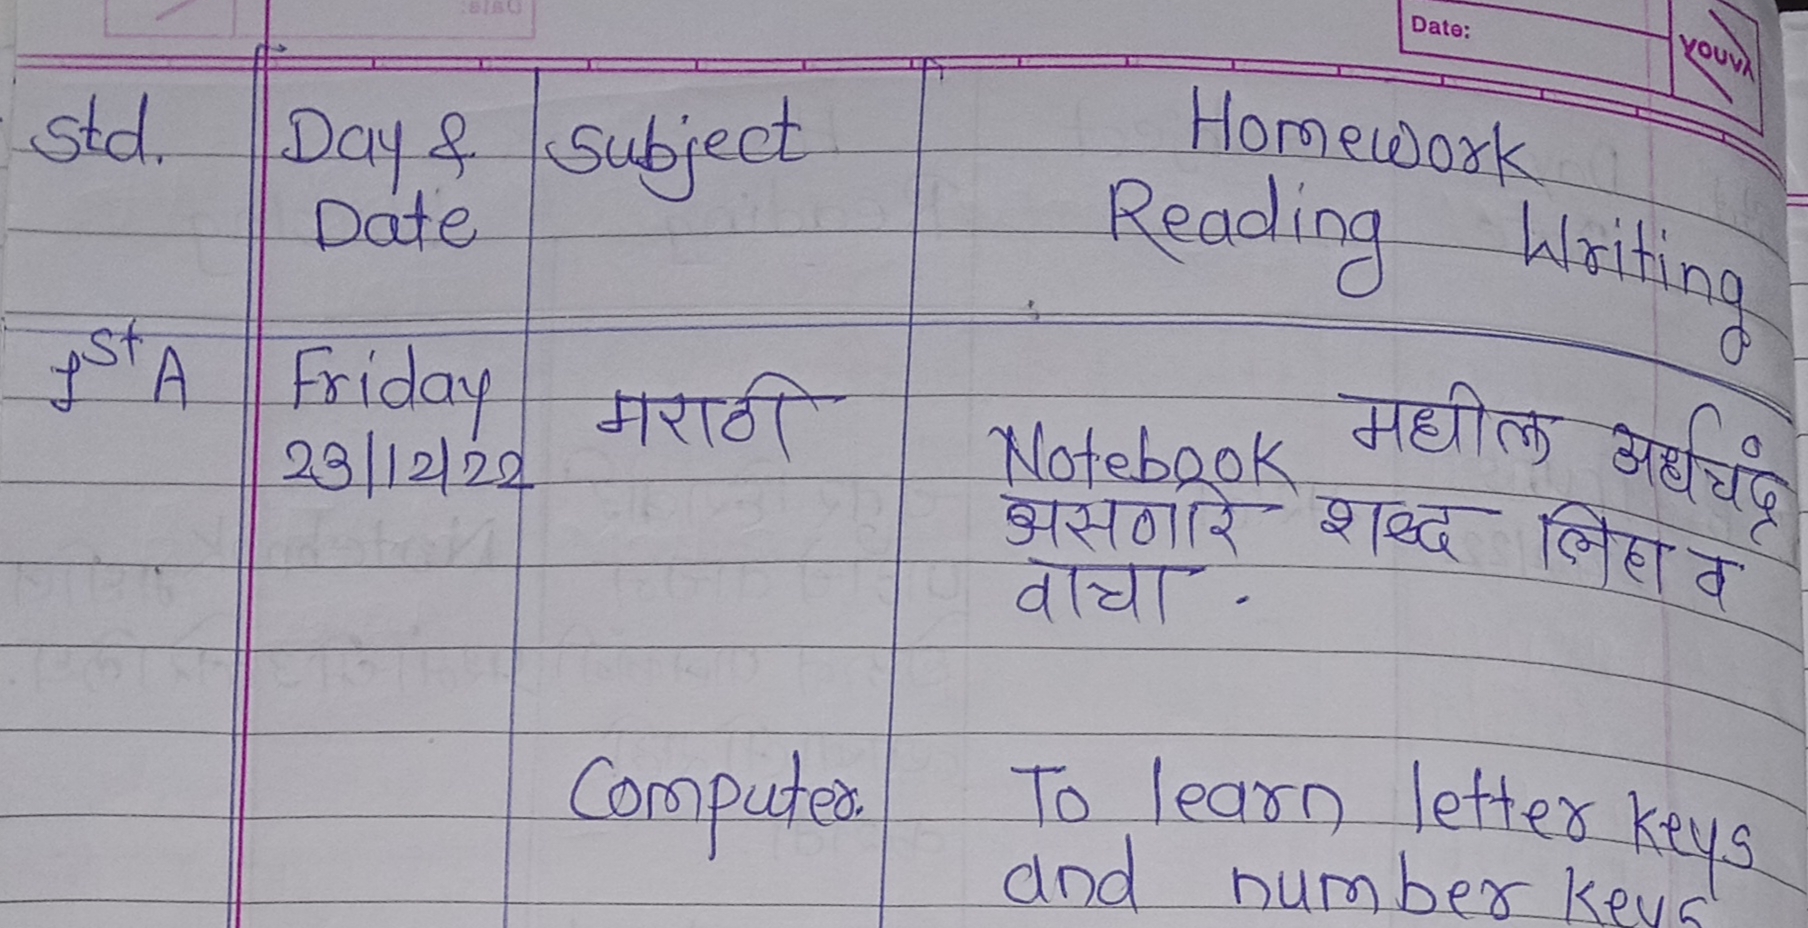 Date:
YOUVA
Std. Day & Subject Homework
Date Reading Writing
1st A Friday मराठी Notebook मधील अर्धचंद्र
23/12/22 असणारे शब्द लिहा व
वाचा.
Computer. To learn letter keys
and number keys